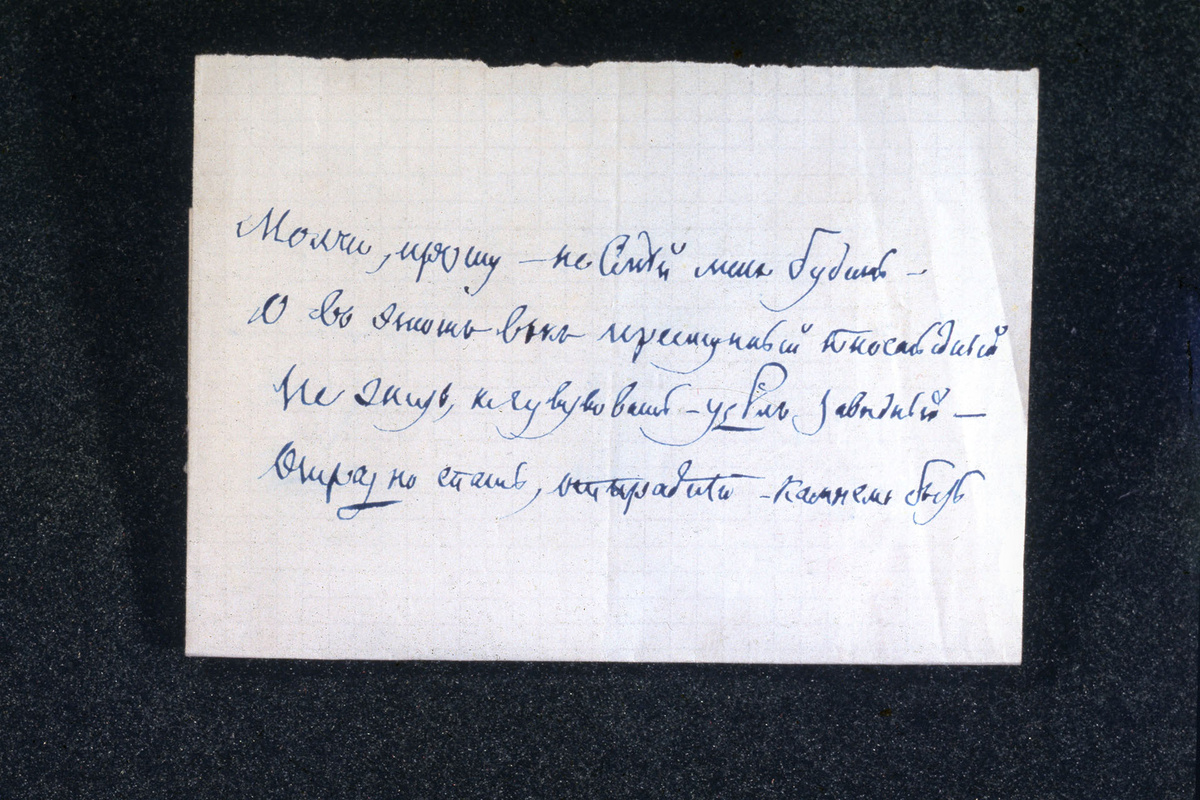 Молчи, прошу – не смѣй меня будить –
О въ этотъ вѣкъ преступный и постыдный
Не жить, не чувствовать – удѣлъ завидный –
Отрадно спать, отраднѣй – камнемъ быть